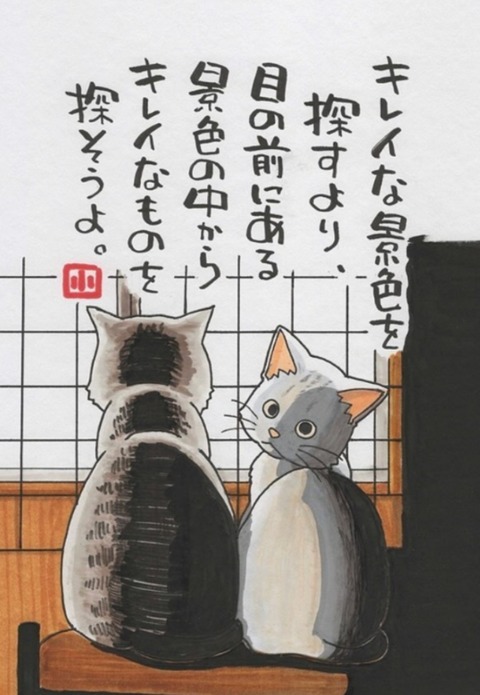 キレイな景色を
探すより、
目の前にある
景色の中から
キレイなものを
探そうよ。